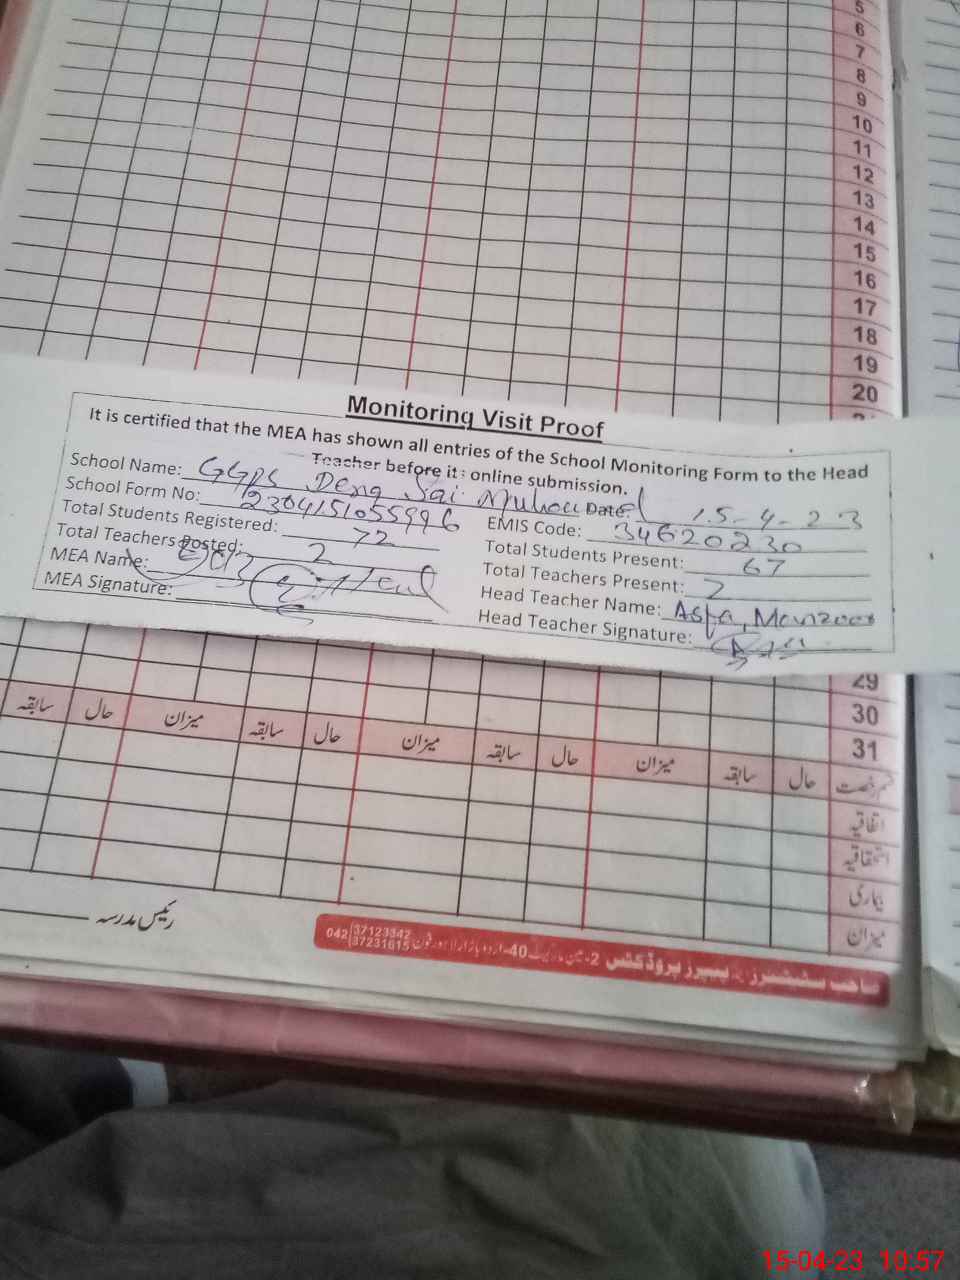 5
6
7
8
9
10
11
12
13
14
15
16
17
18
19
20
Monitoring Visit Proof
It is certified that the MEA has shown all entries of the School Monitoring Form to the Head
Teacher before it's online submission.
School Name: GGPS Deng Sai Date: 15-4-23
School Form No: 230415105599 6 EMIS Code: 34620230
Total Students Registered: 72 Total Students Present: 67
Total Teachers Posted: 2 Total Teachers Present: 2
MEA Name: Head Teacher Name: Asfa, Manzoor
MEA Signature: Head Teacher Signature:
29
30
31
سابقہ حال میزان سابقہ حال میزان سابقہ حال میزان سابقہ حال قسم رخصت
اتفاقیہ
استحقاقیہ
بیماری
میزان
رئیس مدرسہ
صاحب سٹیشنرز پیپرز پروڈکٹس 2- 40-اردو بازار لاہور فون 042 37123342 37231615
15-04-23 10:57